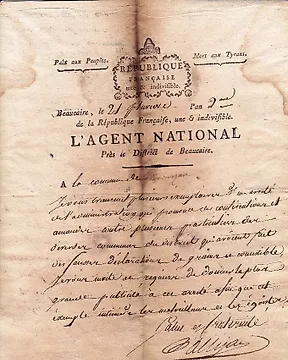 Paix aux Peuples. Mort aux Tyrans.
RÉPUBLIQUE
FRANÇAISE
une et indivisible.
Beaucaire, le 21 l'an 2me
de la République Française, une & indivisible.
L'AGENT NATIONAL
Près le District de Beaucaire.
A la commune de
Je vous envoie plusieurs exemplaires d'un arrêté
de l'administration qui prononce de confiscations et
amandes contre plusieurs particuliers de
diverses communes du district qui avoient fait
de fausses déclarations de grains et comestibles,
je vous invite et requiers de donner la plus
grande publicité à cet arrêté afin que cet
exemple intimide les malveillans et les égoïstes.
Salut et fraternité